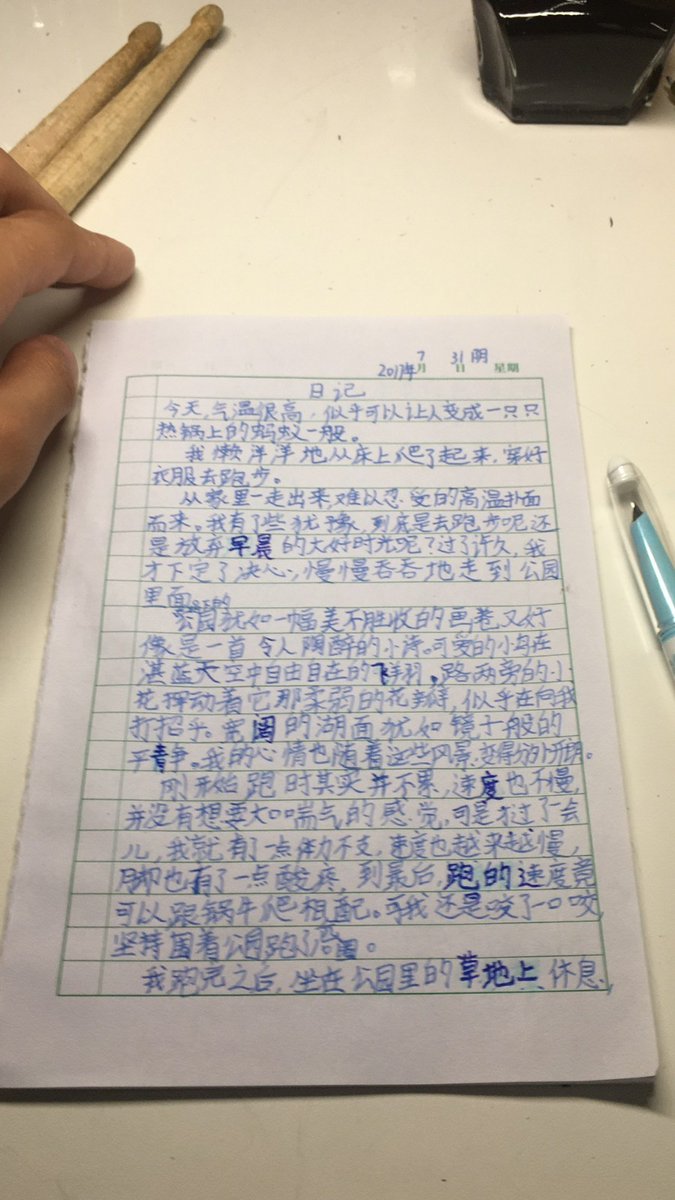 2017年7月31日阴 星期
日记
今天,气温很高,似乎可以让人变成一只只
热锅上的蚂蚁一般。
我懒洋洋地从床上爬了起来,穿好
衣服去跑步。
从家里一走出来,难以忍受的高温扑面
而来。我有了些犹豫,到底是去跑步呢还
是放弃早晨的大好时光呢?过了许久,我
才下定了决心,慢慢吞吞地走到公园
里面
公园犹如一幅美不胜收的画卷又好
像是一首令人陶醉的小诗。可爱的小鸟在
湛蓝天空中自由自在的飞翔。路两旁的小
花挥动着它那柔弱的花瓣,似乎在向我
打招乎。宽阔的湖面犹如镜子般的
平静。我的心情也随着这些风景变得分外开朗。
刚开始跑时其实并不累,速度也不慢,
并没有想要大口喘气的感觉,可是才过了一会
儿,我就有了一点体力不支,速度也越来越慢,
脚也有了一点酸疼,到最后,跑的速度竟
可以跟锅牛爬相配。可我还是咬了一口咬,
坚持围着公园跑了
我跑完之后,坐在公园里的草地上休息,